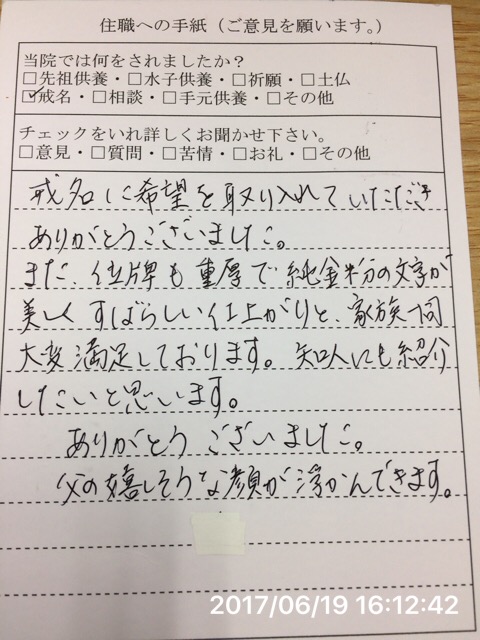 住職への手紙（ご意見を願います。）
当院では何をされましたか？
□先祖供養・□水子供養・□祈願・□土仏
☑戒名・□相談・□手元供養・□その他
チェックをいれ詳しくお聞かせ下さい。
□意見・□質問・□苦情・□お礼・□その他
戒名に希望を取り入れていただき
ありがとうございました。
また、位牌も重厚で純金粉の文字が
美しくすばらしい仕上がりと、家族一同
大変満足しております。知人にも紹介
したいと思います。
ありがとうございました。
父の嬉しそうな顔が浮かんできます。
2017/06/19 16:12:42